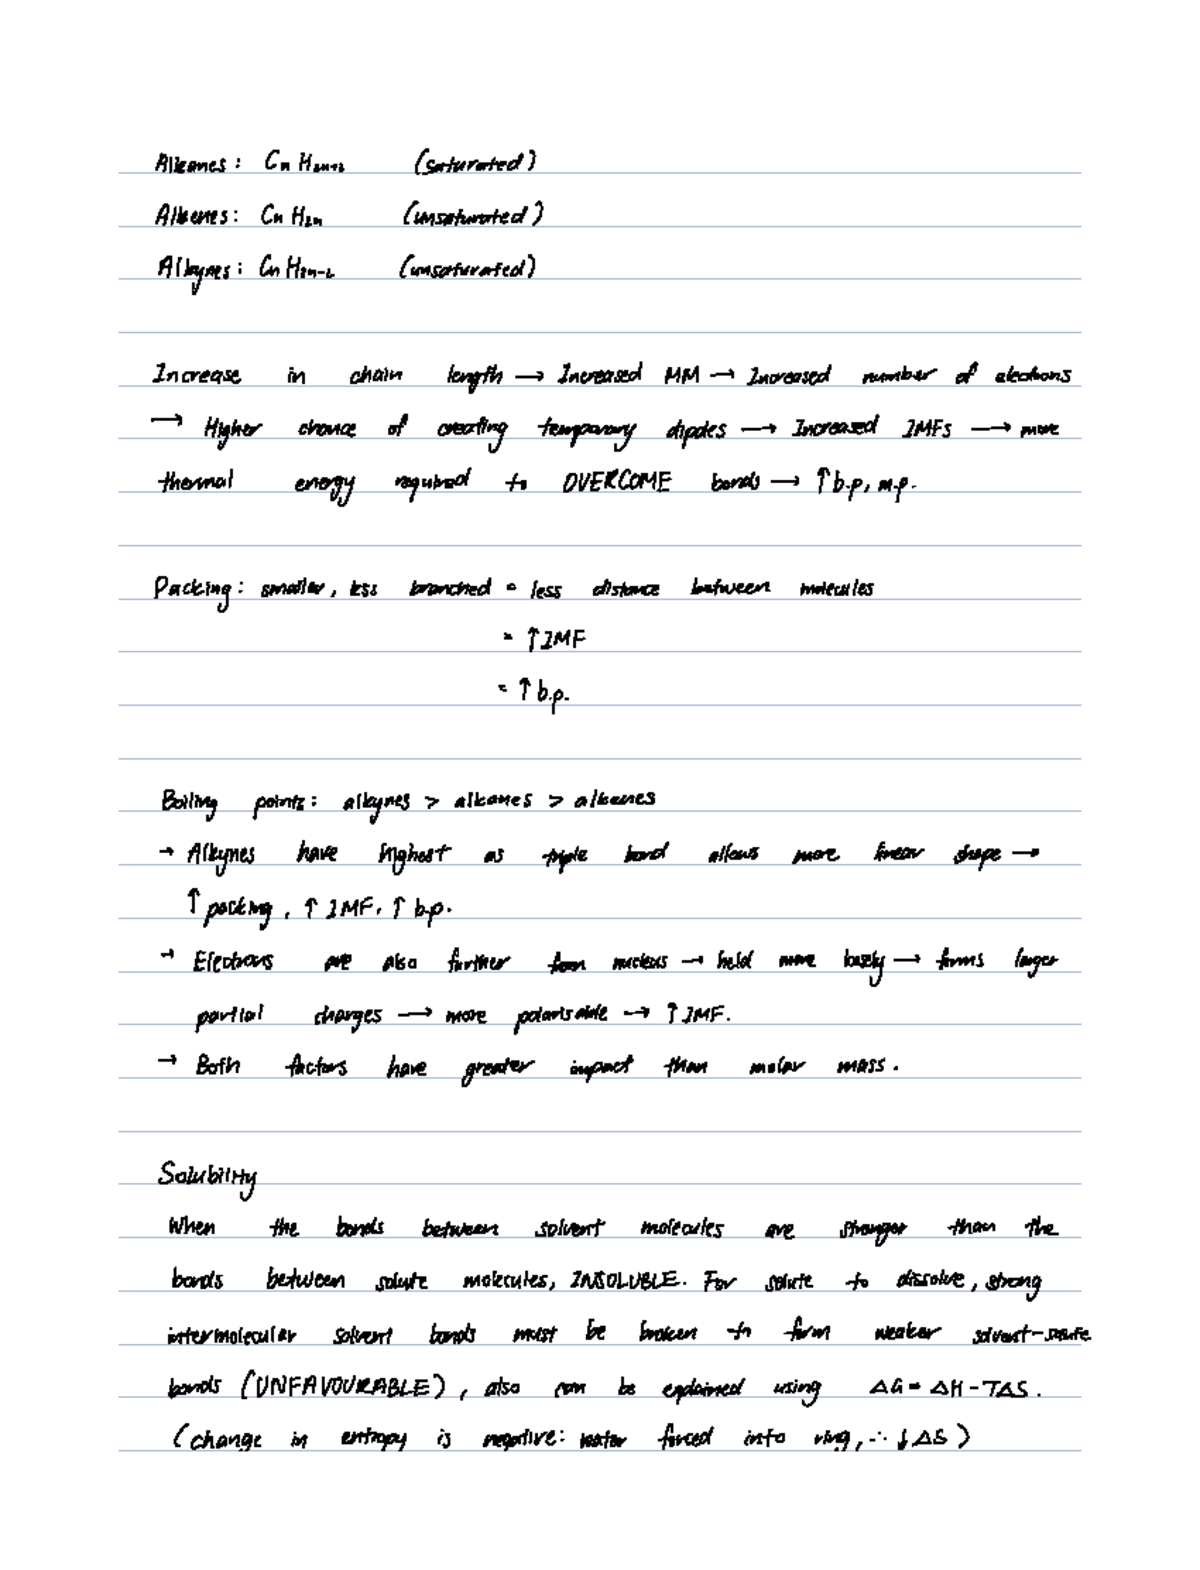 Alkanes: CnH2n+2 (saturated)
Alkenes: CnH2n (unsaturated)
Alkynes: CnH2n-2 (unsaturated)
Increase in chain length → Increased MM → Increased number of electrons
→ Higher chance of creating temporary dipoles → Increased IMFs → more
thermal energy required to OVERCOME bonds → ↑b.p, m.p.
Packing: smaller, less branched = less distance between molecules
= ↑IMF
= ↑b.p.
Boiling points: alkynes > alkanes > alkenes
→ Alkynes have highest as triple bond allows more linear shape →
↑packing, ↑IMF, ↑b.p.
→ Electrons are also further from nucleus → held more loosely → forms larger
partial charges → more polarisable → ↑IMF.
→ Both factors have greater impact than molar mass.
Solubility
When the bonds between solvent molecules are stronger than the
bonds between solute molecules, INSOLUBLE. For solute to dissolve, strong
intermolecular solvent bonds must be broken to form weaker solvent-solute
bonds (UNFAVOURABLE), also can be explained using ΔG = ΔH - TΔS.
(change in entropy is negative: water forced into ring, ∴ ↓ΔS)